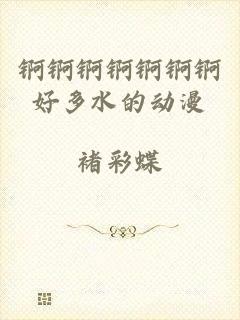 锕锕锕锕锕锕锕
好多水的动漫
褚彩蝶